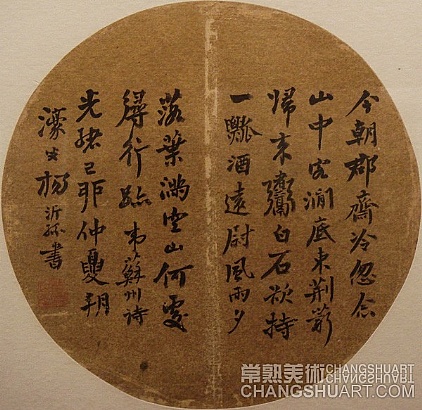 今朝郡齋冷忽念
山中客澗底束荊薪
歸來鬻白石欲持
一瓢酒遠尉風雨夕
落葉滿空山何處
尋行跡 韋蘇州詩
光緒己卯仲夏朔
濠叟楊沂孫書
常熟美術 CHANGSHUART
CHANGSHUART.COM